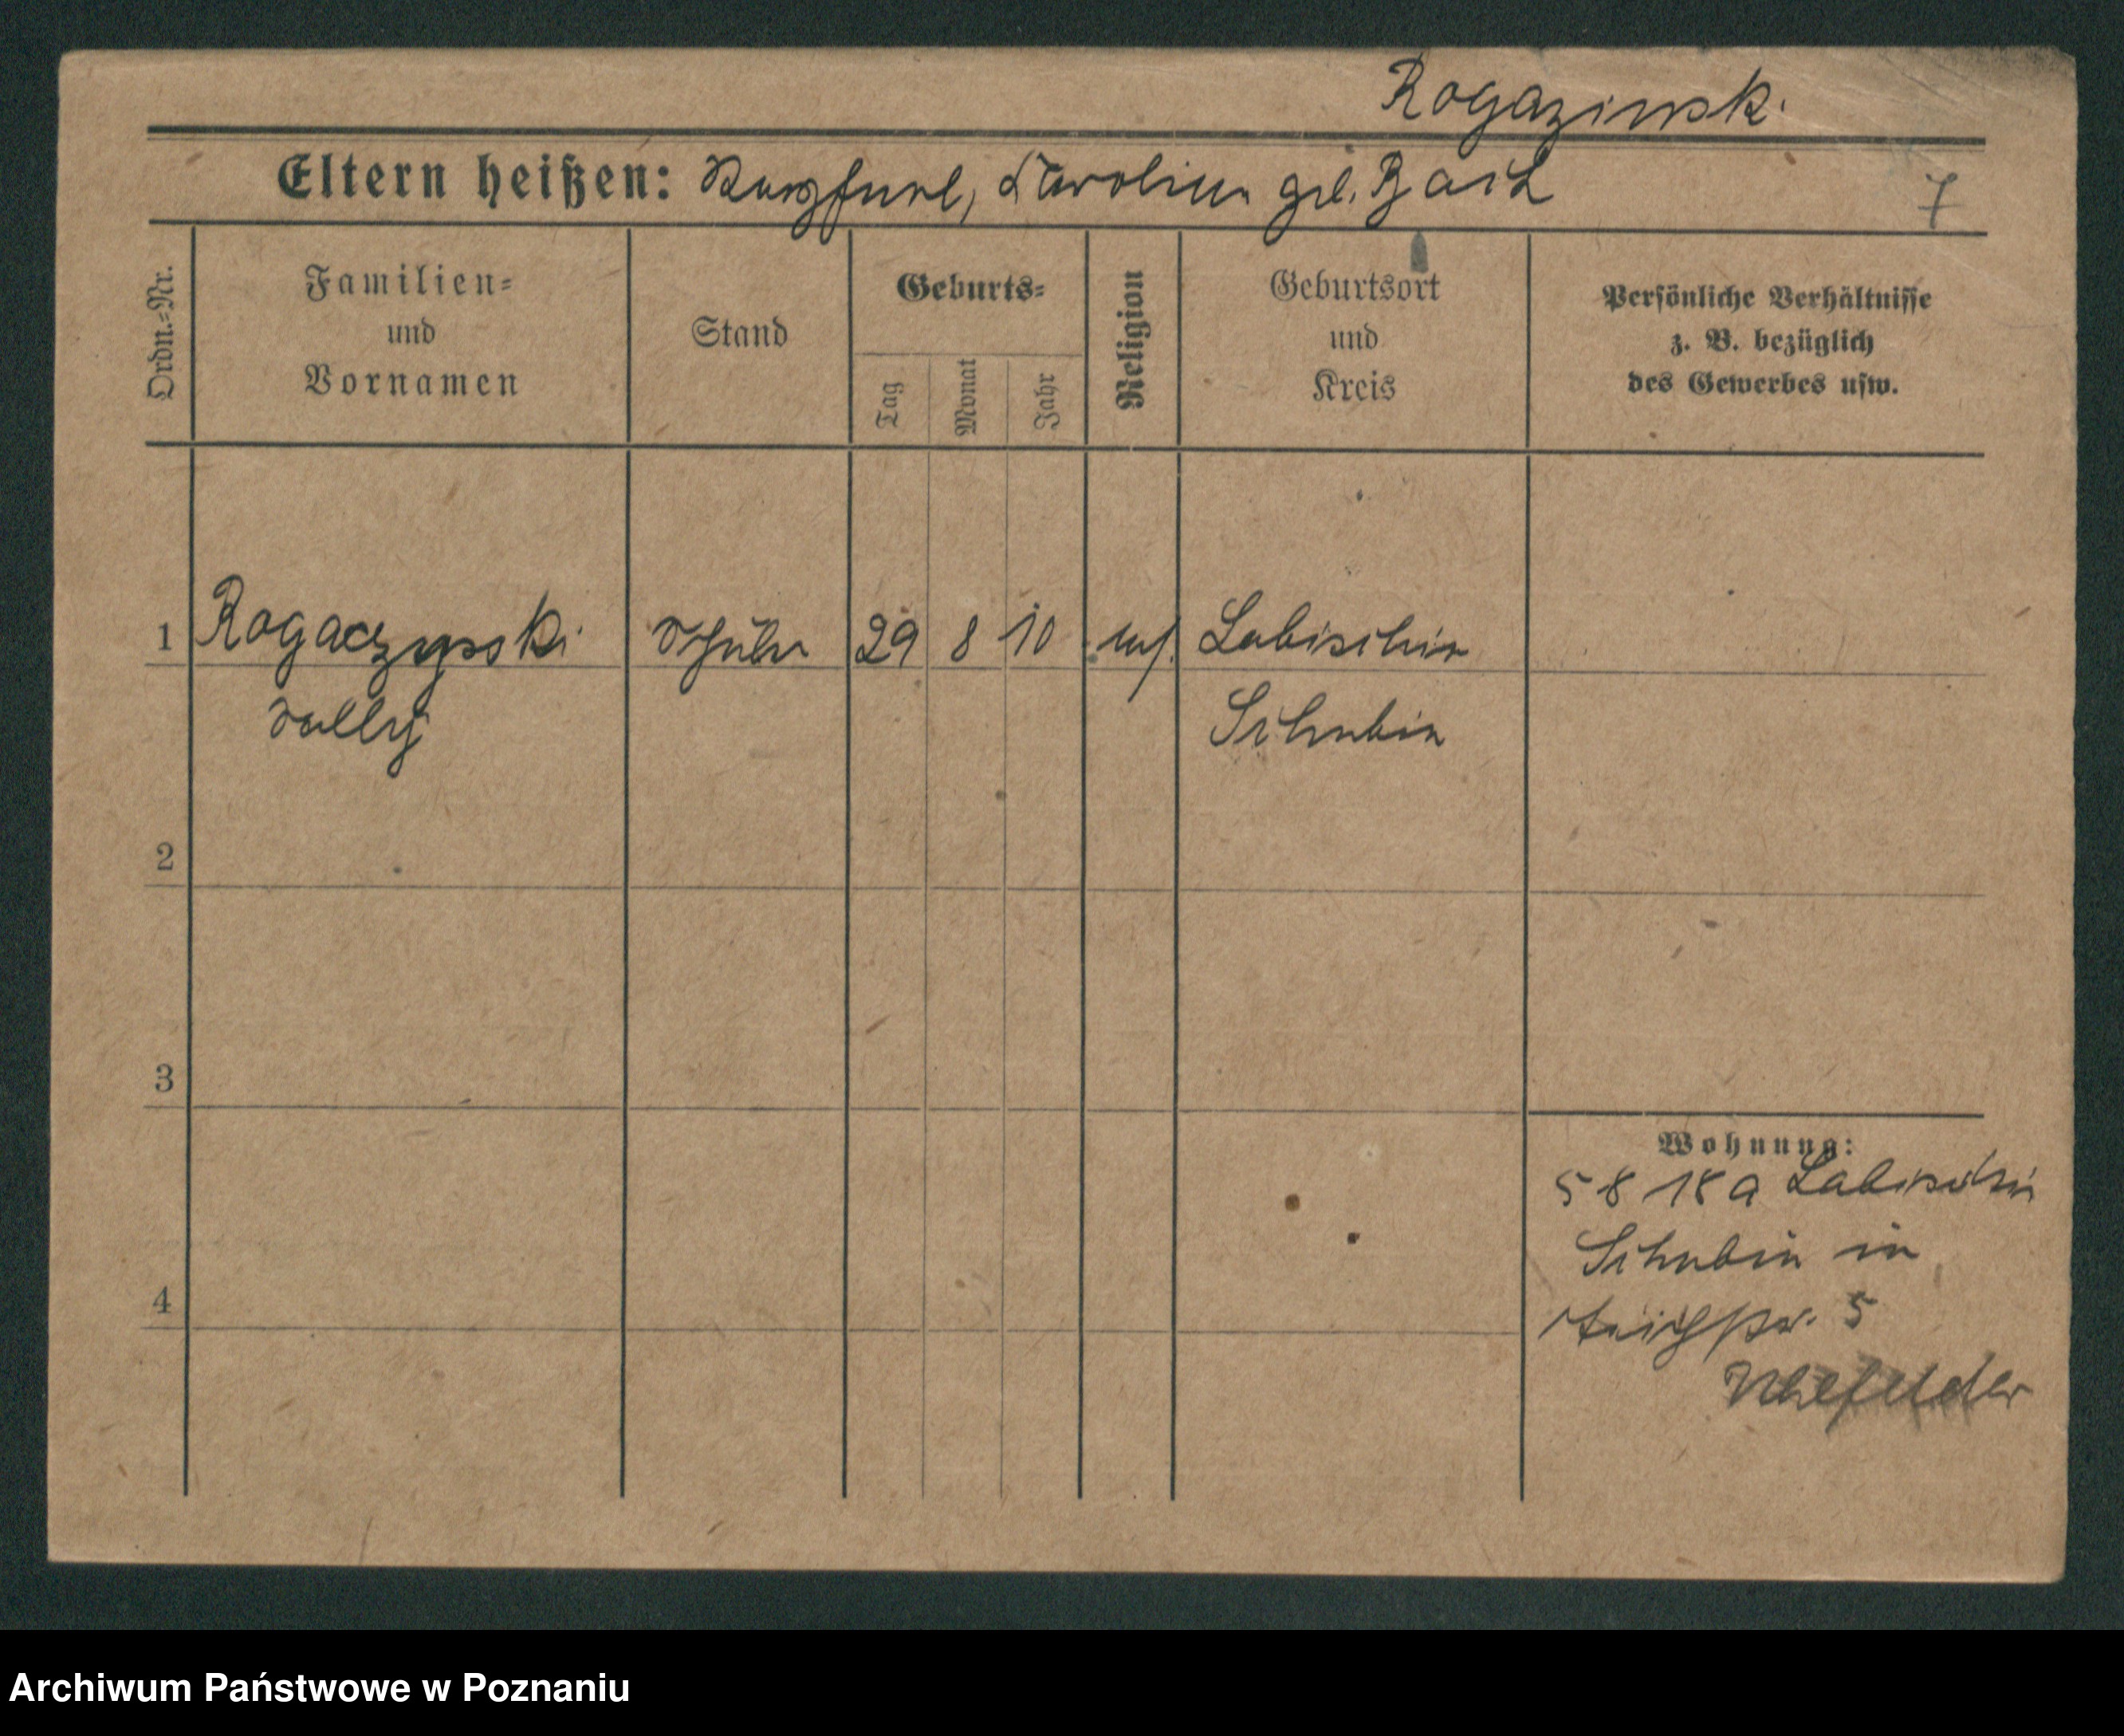 Rogazinski
Eltern heißen: Karoline geb.
7
Ordn.=Nr.
Familien=
und
Vornamen
Stand
Geburts=
Tag
Monat
Jahr
Religion
Geburtsort
und
Kreis
Persönliche Verhältnisse
z. B. bezüglich
des Gewerbes usw.
1 Rogaczynski Schüler 29 8 10 mos. Labischin
Sally Schubin
2
3
4
Wohnung:
5 8 18 a Labischin
Schubin in
5
Archiwum Państwowe w Poznaniu